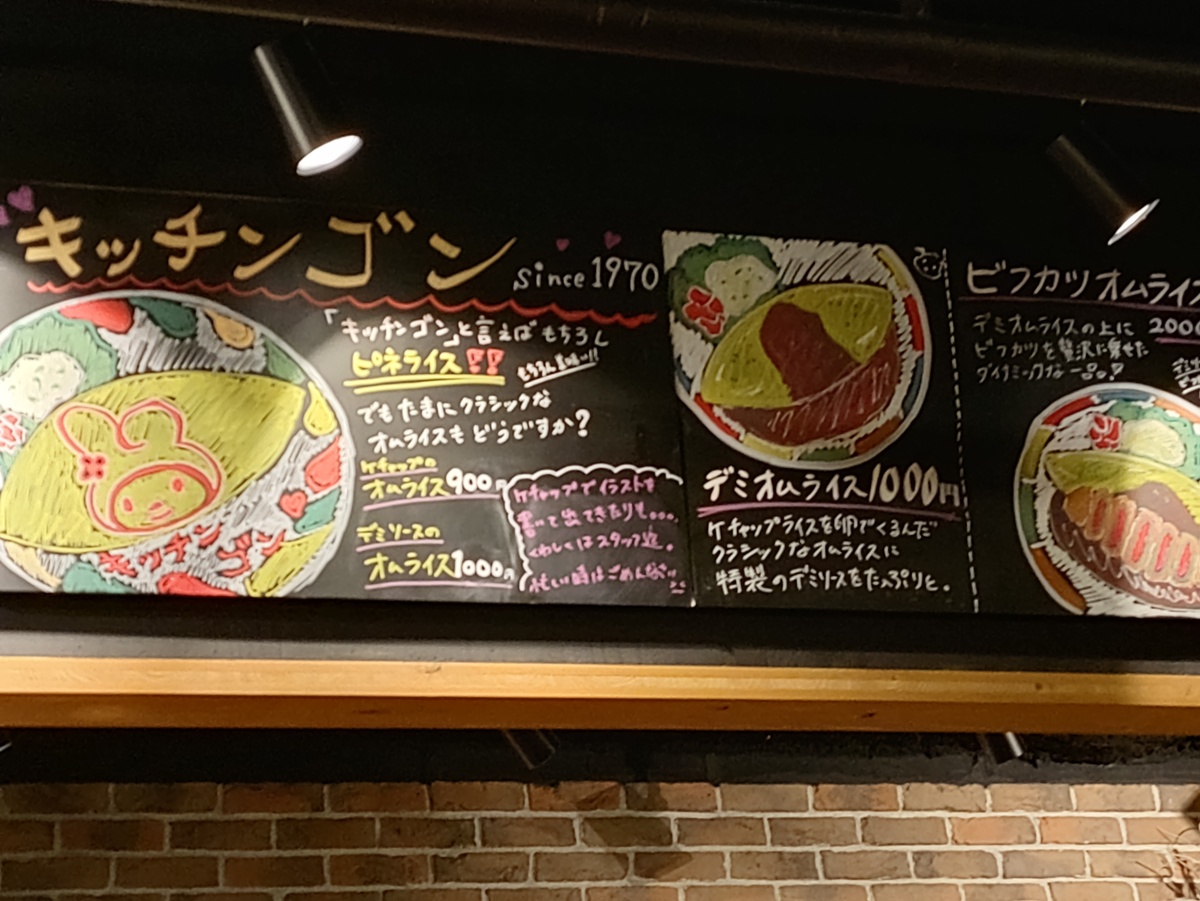 キッチンゴン
since 1970
「キッチンゴン」と言えばもちろん
ピネライス!!
もちろん美味い!!
でもたまにクラシックな
オムライスもどうですか?
ケチャップの
オムライス900円
デミソースの
オムライス1000円
ケチャップでイラストを
書いて出てきたりも。。。
くわしくはスタッフ迄。
忙しい時はごめんなさい
キッチンゴン
デミオムライス1000円
ケチャップライスを卵でくるんだ
クラシックなオムライスに
特製のデミソースをたっぷりと。
ビフカツオムライス
デミオムライスの上に
ビフカツを贅沢に乗せた
ダイナミックな一品。!
200